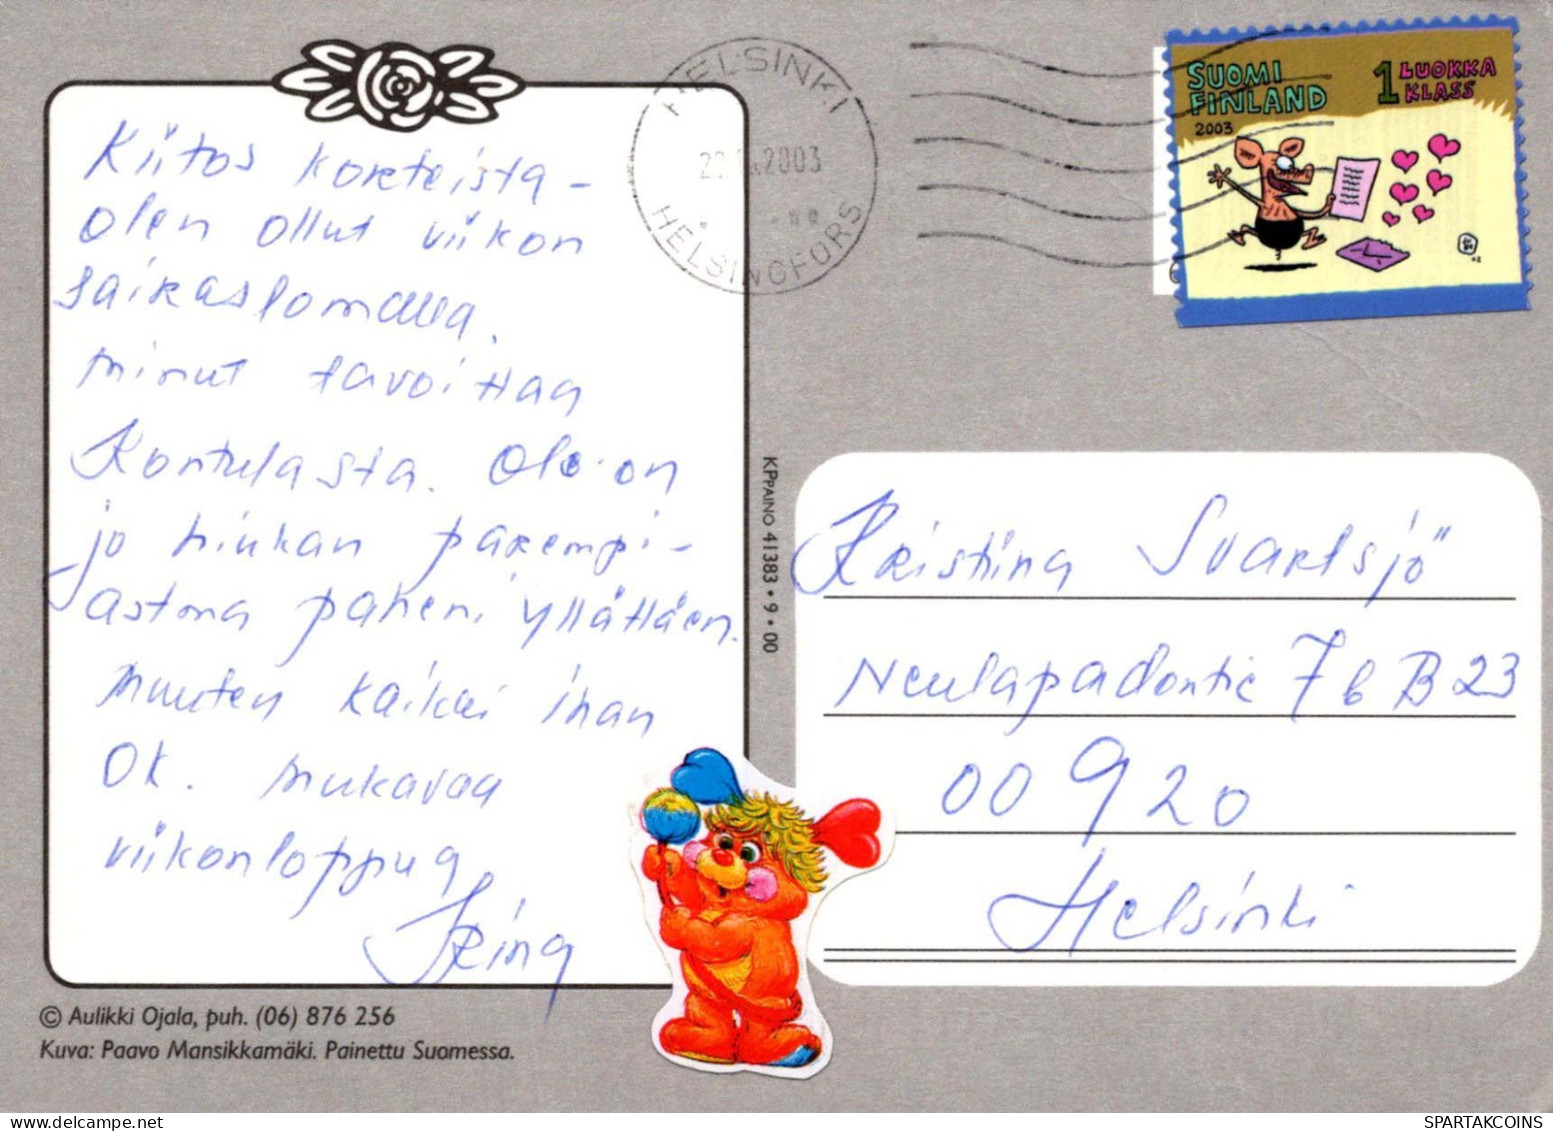 Kiitos korteista -
olen ollut viikon
saikaslomalla.
minut tavoittaa
Kontulasta. Olo on
jo hiukan parempi -
astma paheni yllättäen.
muuten kaikki ihan
OK. mukavaa
viikonloppua
Irina
© Aulikki Ojala, puh. (06) 876 256
Kuva: Paavo Mansikkamäki. Painettu Suomessa.
KPPAINO 41383 • 9 • 00
HELSINKI
2003
HELSINGFORS
SUOMI
FINLAND
2003
1 LUOKKA
KLASS
Kristiina Svartsjö
Neulapadontie 7 b B 23
00920
Helsinki
SPARTAKCOINS